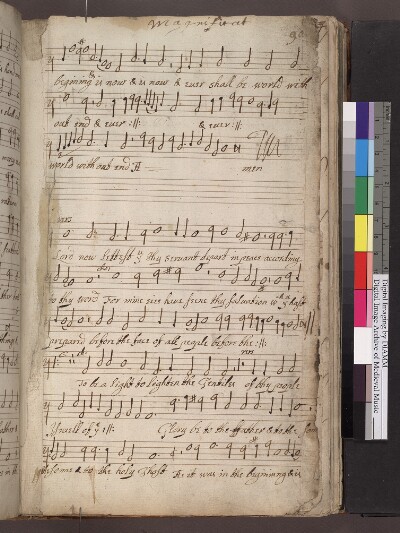 Magnificat
begining is now & is now & ever shall be world with
out end & ever :||: & ever :||:
world without end: A men
Lord now lettest y thy servant depart in peace according
to thy word For mine eies have seene thy salvation wch y hast
prepared before the face of all people before the :||:
To be a light to lighten the Gentiles of thy people
Israell of y :||: Glory be to the ffather & to the
& to the holy Ghost As it was in the beginning & is
Digital Imaging by DIAMM
Digital Image Archive of Medieval Music